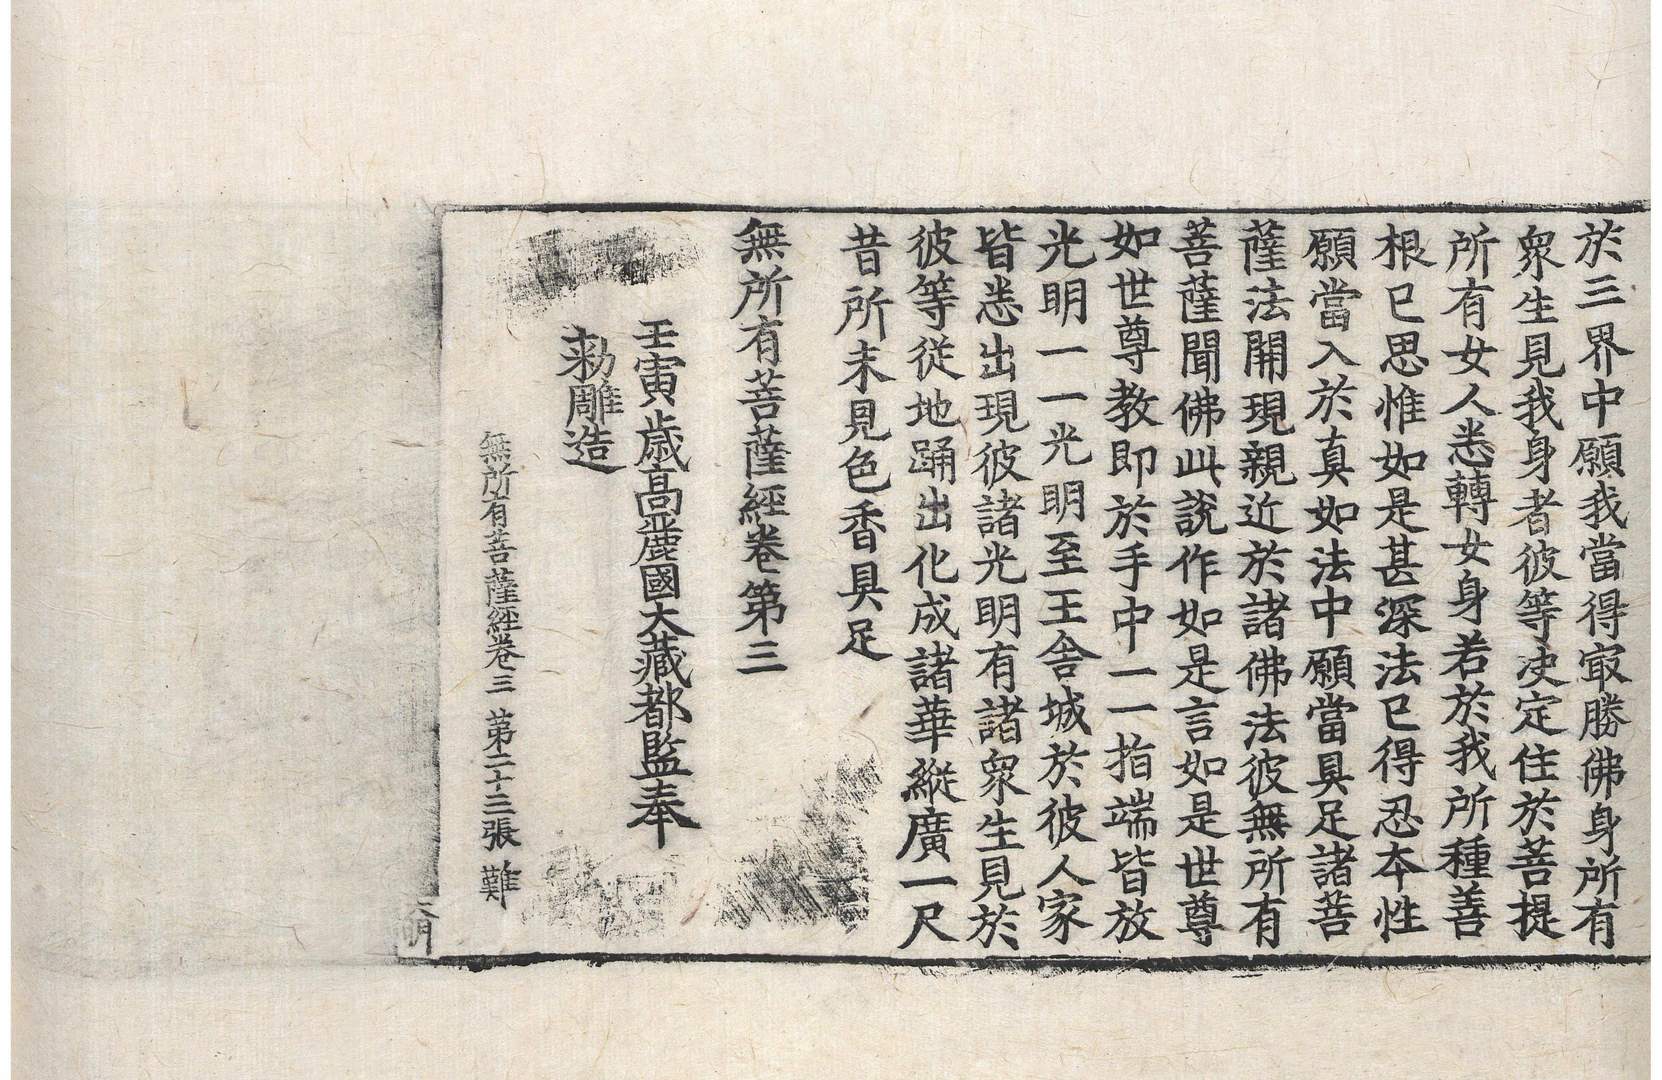 於三界中願我當得㝡勝佛身所有
衆生見我身者彼等决定住於菩提
所有女人悉轉女身若於我所種善
根已思惟如是甚深法已得忍本性
願當入於真如法中願當具足諸菩
薩法開現親近於諸佛法彼無所有
菩薩聞佛此說作如是言如是世尊
如世尊教即於手中一一指端皆放
光明一一光明至王舍城於彼人家
皆悉出現彼諸光明有諸衆生見於
彼等從地踊出化成諸華縱廣一尺
昔所未見色香具足
無所有菩薩經卷第三
壬寅歲高麗國大藏都監奉
勑雕造
無所有菩薩經卷三 第二十三張 難
明